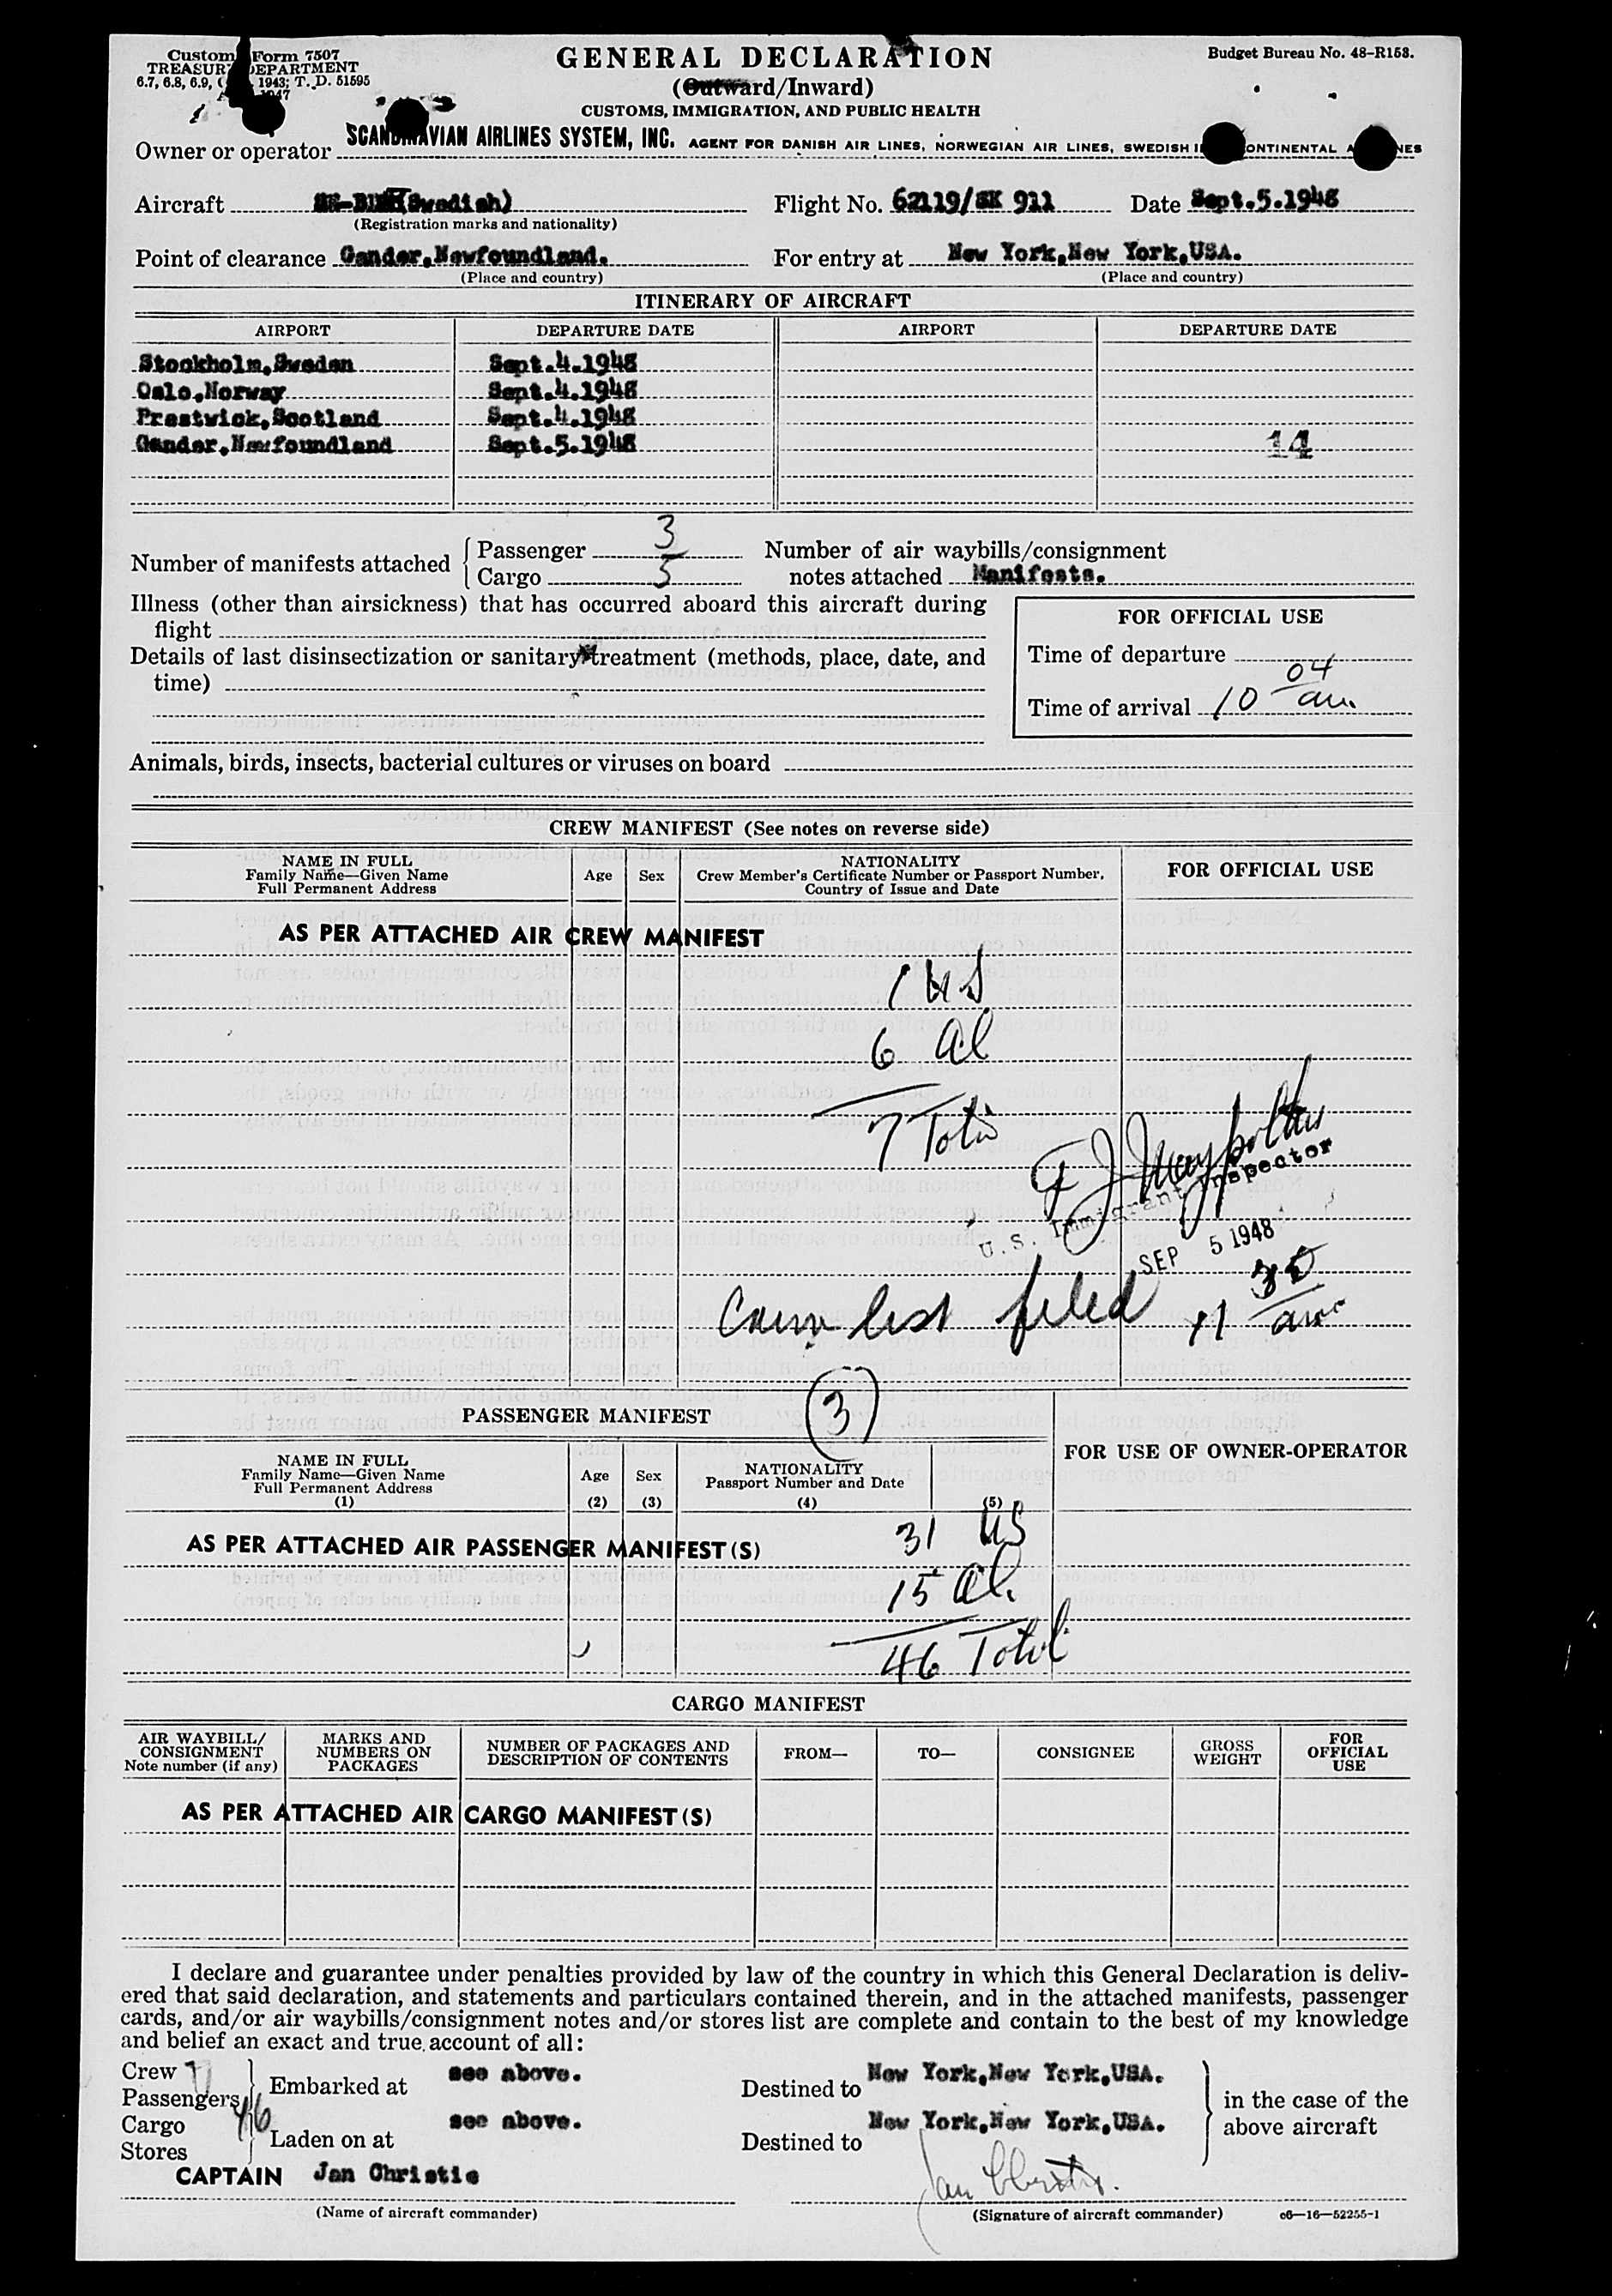 Customs Form 7507
TREASURY DEPARTMENT
6.7, 6.8, 6.9, 1943; T. D. 51595
1947
GENERAL DECLARATION
(Outward/Inward)
CUSTOMS, IMMIGRATION, AND PUBLIC HEALTH
Budget Bureau No. 48-R158.
Owner or operator SCANDINAVIAN AIRLINES SYSTEM, INC. AGENT FOR DANISH AIR LINES, NORWEGIAN AIR LINES, SWEDISH INTERCONTINENTAL AIRLINES
Aircraft (Swedish) Flight No. 62119/SK 911 Date Sept.5.1948
(Registration marks and nationality)
Point of clearance Gander,Newfoundland. For entry at New York,New York,USA.
(Place and country) (Place and country)
ITINERARY OF AIRCRAFT
AIRPORT DEPARTURE DATE AIRPORT DEPARTURE DATE
Stockholm,Sweden Sept.4.1948
Oslo,Norway Sept.4.1948
Prestwick,Scotland Sept.4.1948
Gander,Newfoundland Sept.5.1948 14
Number of manifests attached Passenger 3 Number of air waybills/consignment
Cargo 5 notes attached Manifests.
Illness (other than airsickness) that has occurred aboard this aircraft during
flight
Details of last disinsectization or sanitary treatment (methods, place, date, and
time)
FOR OFFICIAL USE
Time of departure
Time of arrival 10 04 am
Animals, birds, insects, bacterial cultures or viruses on board
CREW MANIFEST (See notes on reverse side)
NAME IN FULL
Family Name—Given Name
Full Permanent Address
Age Sex
NATIONALITY
Crew Member's Certificate Number or Passport Number,
Country of Issue and Date
FOR OFFICIAL USE
AS PER ATTACHED AIR CREW MANIFEST
1 US
6 al
7 Total
U.S. Immigrant Inspector
SEP 5 1948
Crew list filed 11 30 am
3
PASSENGER MANIFEST
NAME IN FULL
Family Name—Given Name
Full Permanent Address
(1)
Age
(2)
Sex
(3)
NATIONALITY
Passport Number and Date
(4) (5)
FOR USE OF OWNER-OPERATOR
AS PER ATTACHED AIR PASSENGER MANIFEST(S)
31 US
15 al.
46 Total
CARGO MANIFEST
AIR WAYBILL/
CONSIGNMENT
Note number (if any)
MARKS AND
NUMBERS ON
PACKAGES
NUMBER OF PACKAGES AND
DESCRIPTION OF CONTENTS
FROM— TO— CONSIGNEE
GROSS
WEIGHT
FOR
OFFICIAL
USE
AS PER ATTACHED AIR CARGO MANIFEST(S)
I declare and guarantee under penalties provided by law of the country in which this General Declaration is deliv-
ered that said declaration, and statements and particulars contained therein, and in the attached manifests, passenger
cards, and/or air waybills/consignment notes and/or stores list are complete and contain to the best of my knowledge
and belief an exact and true account of all:
Crew 7
Passengers 46
Cargo
Stores
Embarked at see above. Destined to New York,New York,USA.
Laden on at see above. Destined to New York,New York,USA.
in the case of the
above aircraft
CAPTAIN Jan Christie Jan Christie.
(Name of aircraft commander) (Signature of aircraft commander) c6—16—52255-1